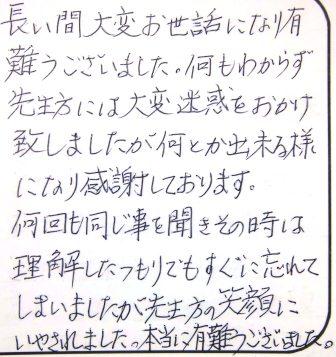 長い間大変お世話になり有
難うございました。何もわからず
先生方には大変迷惑をおかけ
致しましたが何とか出来る様
になり感謝しております。
何回も同じ事を聞きその時は
理解したつもりでもすぐに忘れて
しまいましたが先生方の笑顔に
いやされました。本当に有難うございました。